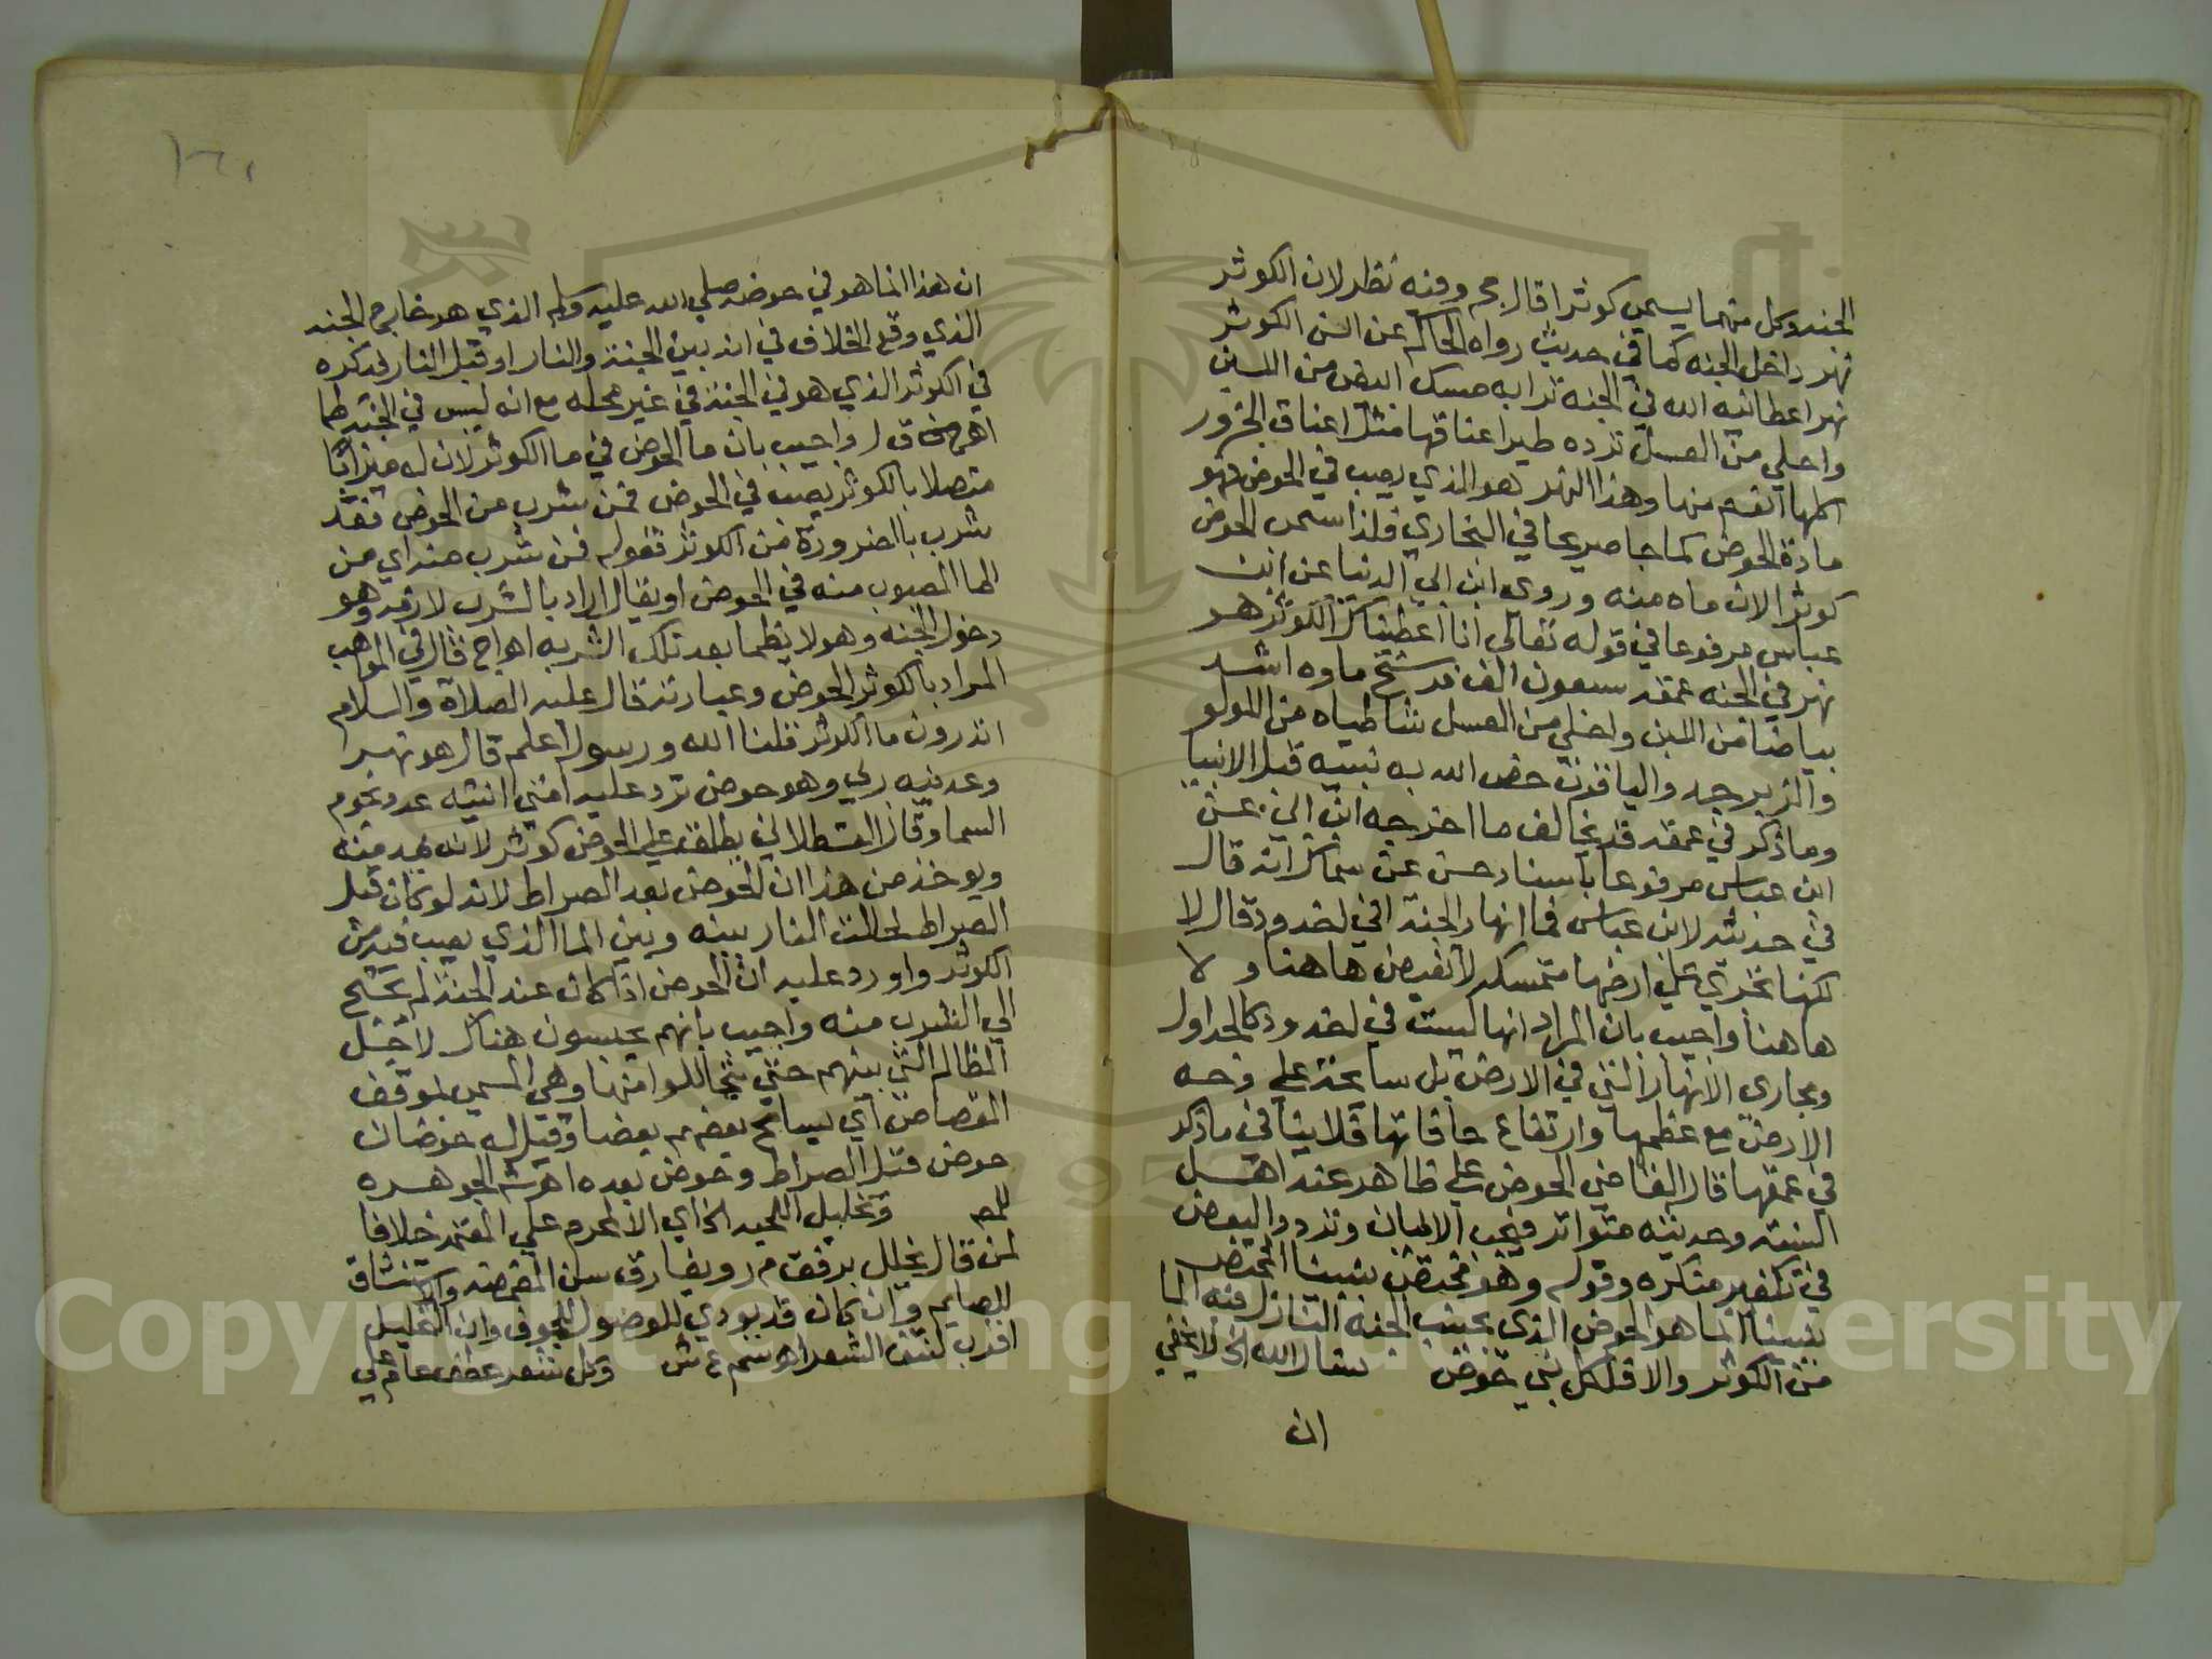 الجنه وكل منهما يسمي كوثرا قال حج وفيه نظر لان الكوثر
نهر داخل الجنه كما في حديث رواه الحاكم عن انس الكوثر
نهر اعطانيه الله في الجنه ترابه مسك ابيض من اللبن
واحلي من العسل ترده طير اعناقها مثل اعناق الجزور
اكلها انعم منها وهذا النهر هو الذي يصب في الحوض فهو
مادة الحوض كما جا صريحا في البخاري فلذا سمى الحوض
كوثرا لان ماه منه وروى ابن ابي الدنيا عن ابن
عباس مرفوعا في قوله تعالى انا اعطيناك الكوثر هو
نهر في الجنه عمقه سبعون الف فرسخ ماوه اشد
بياضا من اللبن واحلي من العسل شاطياه من اللولو
والزبرجد والياقوت خص الله به نبيه قبل الانبيا
وما ذكر في عمقه قد يخالف ما اخرجه ابن ابي عن
ابن عباس مرفوعا باسناد حسن عن سماك انه قال
في حديثه لابن عباس فما انهار الجنة افي اخدود قال لا
لكنها تجري علي ارضها متمسكه لا تفيض هاهنا ولا
هاهنا واجيب بان المراد انها ليست في اخدود كالجداول
ومجارى الانهار التي في الارض بل سايحة علي وجه
الارض مع عظمها وارتفاع حافاتها فلا ينافي ما ذكر
في عمقها قال القاضي الحوض علي ظاهر عند اهل
السنة وحديثه متواتر فيجب الايمان وتردد البعض
في تكفير منكره وقوله وهو مختص بنبينا المختص
بنبينا انما هو الحوض الذي بجنب الجنه النازل فيه الما
من الكوثر والا فلكل نبي حوض سقانا الله الخ لا يخفي
ان
ان هذا انما هو في حوضه صلي الله عليه وسلم الذي هو خارج الجنه
الذي وقع الخلاف في انه بين الجنة والنار او قبل النار فذكره
في الكوثر الذي هو في الجنة في غير محله مع انه ليس في الجنة ظما
اهـ ق ل واجيب بان ما الحوض في ما الكوثر لان له ميزابا
متصلا بالكوثر يصب في الحوض فمن شرب من الحوض فقد
شرب بالضرورة من الكوثر فقوله فمن شرب منه اي من
الما المصبوب منه في الحوض او يقال اراد بالشرب لازمه وهو
دخول الجنه وهو لا يظما بعد تلك الشربه اهـ اج قال في المواهب
المراد بالكوثر الحوض وعبارته قال عليه الصلاة والسلام
اتدرون ما الكوثر قلنا الله ورسوله اعلم قال هو نهر
وعدنيه ربي وهو حوض ترد عليه امتي انيته عدد نجوم
السما وقال القسطلاني يطلق علي الحوض كوثر لانه يمد منه
ويوخذ من هذا ان الحوض بعد الصراط لانه لو كان قبل
الصراط لحالت النار بينه وبين الما الذي يصب فيه من
الكوثر واورد عليه ان الحوض اذا كان عند الجنة لم يحتج
الي الشرب منه واجيب بانهم يحبسون هناك لاجل
المظالم التي بينهم حتي يتحاللوا منها وهي المسمي بموقف
القصاص اي يسامح بعضهم بعضا وقيل له حوضان
حوض قبل الصراط وحوض بعده اهـ ش الجوهره
وتخليل اللحيه الخ اي الا لمحرم علي المعتمد خلافا
لمن قال يخلل برفق م ر ويفارق سن المضمضه والاستنشاق
للصايم وان كان قد يودي للوصول للجوف وان التخليل
اقرب لنتف الشعر اهـ سم ع ش وكل شعر عطف عام علي